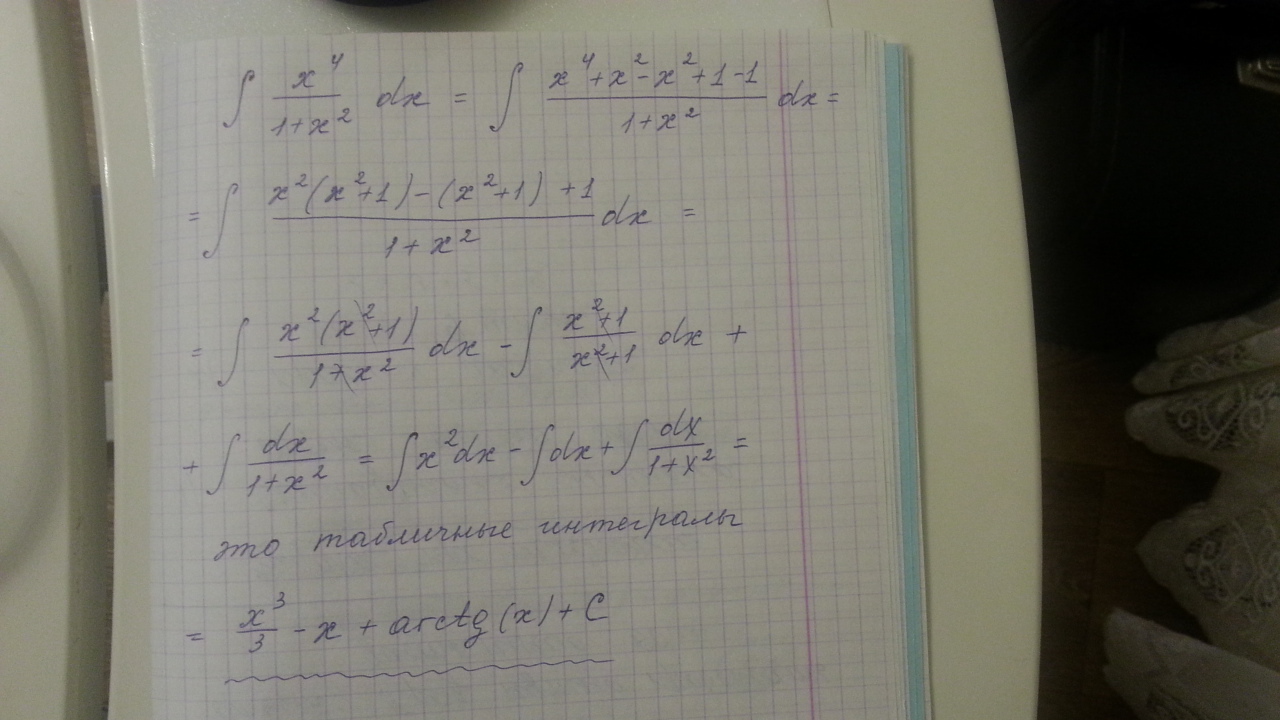 ∫ x⁴/(1+x²) dx = ∫ (x⁴+x²-x²+1-1)/(1+x²) dx =
= ∫ (x²(x²+1)-(x²+1)+1)/(1+x²) dx =
= ∫ x²(x²+1)/(1+x²) dx - ∫ (x²+1)/(x²+1) dx +
+ ∫ dx/(1+x²) = ∫x²dx - ∫dx + ∫ dx/(1+x²) =
это табличные интегралы
= x³/3 - x + arctg(x) + C